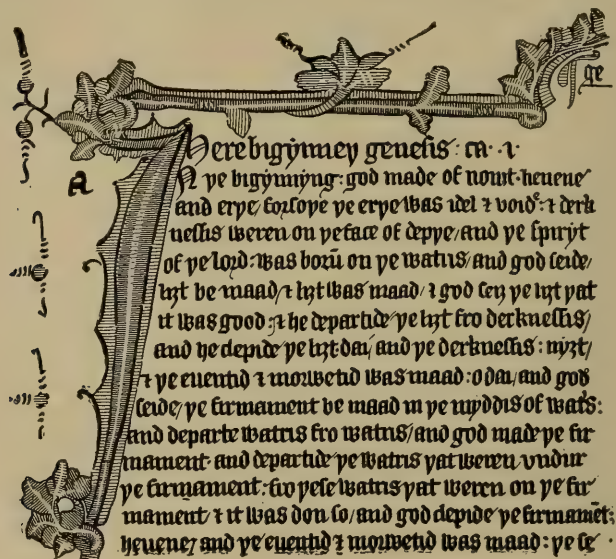 ge
Here bigynneþ genesis: ca. ·i·
a
In þe bigynnyng: god made of nouȝt· heuene
and erþe/ forsoþe þe erþe was idel ⁊ voide: ⁊ derk
nessis weren on þe face of depþe/ and þe spiryt
of þe lord: was borū on þe watris/ and god seide/
liȝt be maad/ ⁊ liȝt was maad/ ⁊ god seȝ þe liȝt þat
it was good: ⁊ he departide þe liȝt fro derknessis/
and he clepide þe liȝt dai/ and þe derknessis: nyȝt/
⁊ þe euentid ⁊ morwetid was maad: o dai/ and god
seide/ þe firmament be maad in þe myddis of watrs:
and departe watris fro watris/ and god made þe fir
mament· and departide þe watris þat weren vndur
þe firmament: fro þese watris þat weren on þe fir
mament/ ⁊ it was don so/ and god clepide þe firmamēt:
heuene/ and þe euentid ⁊ morwetid was maad: þe se